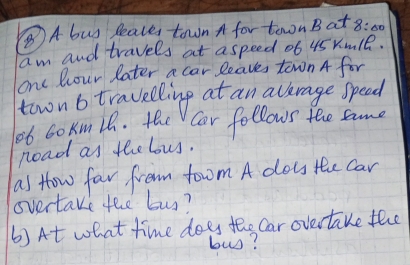 (B) A bus leaves town A for town B at 8:00
am and travels at a speed of 45 Km/h.
One hour later a car leaves town A for
town B travelling at an average speed
of 60 Km/h. The car follows the same
road as the bus.
a) How far from town A does the car
overtake the bus?
b) At what time does the car overtake the
bus?